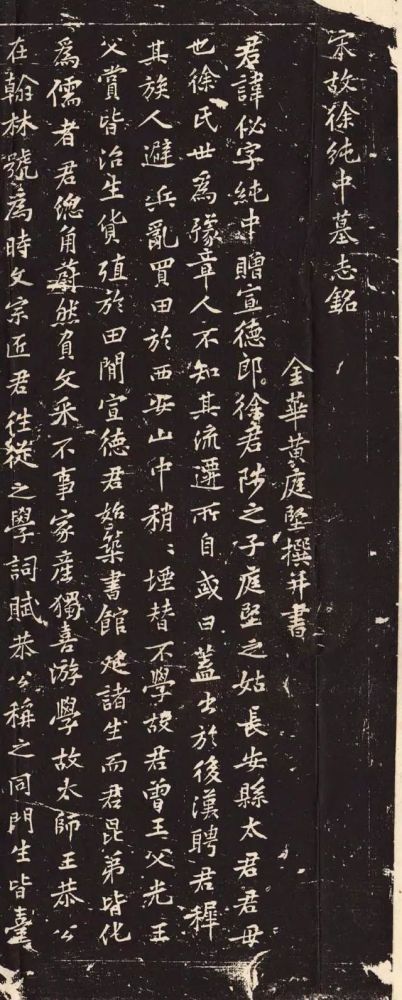 宋故徐純中墓志銘
金華黃庭堅撰并書
君諱佖字純中贈宣德郎徐君陟之子庭堅之姑長安縣太君君母
也徐氏世為豫章人不知其流遷所自或曰蓋出於後漢聘君穉
其族人避兵亂買田於西安山中稍〻堙替不學故君曾王父光王
父賞皆治生貨殖於田閒宣德君始築書館延諸生而君昆弟皆化
為儒者君緫角蔚然負文采不事家產獨喜游學故太師王恭公
在翰林號為時文宗匠君往從之學詞賦恭公稱之同門生皆臺